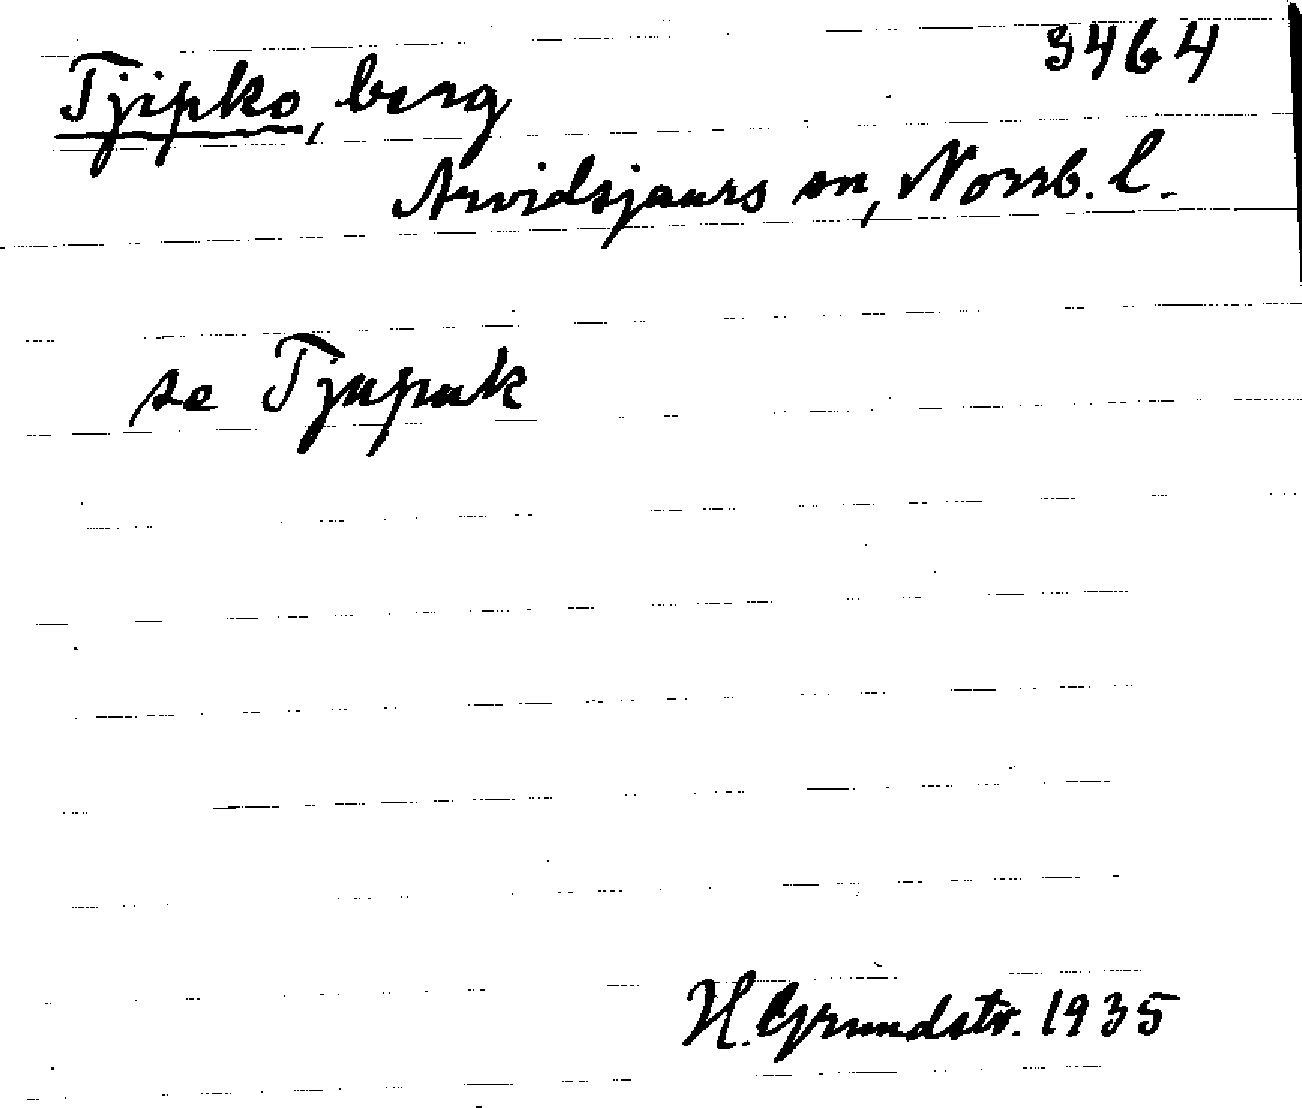 3464
Tjipko, berg
Arvidsjaurs sn, Norrb. l.
se Tjupuk
H. Grundstr. 1935